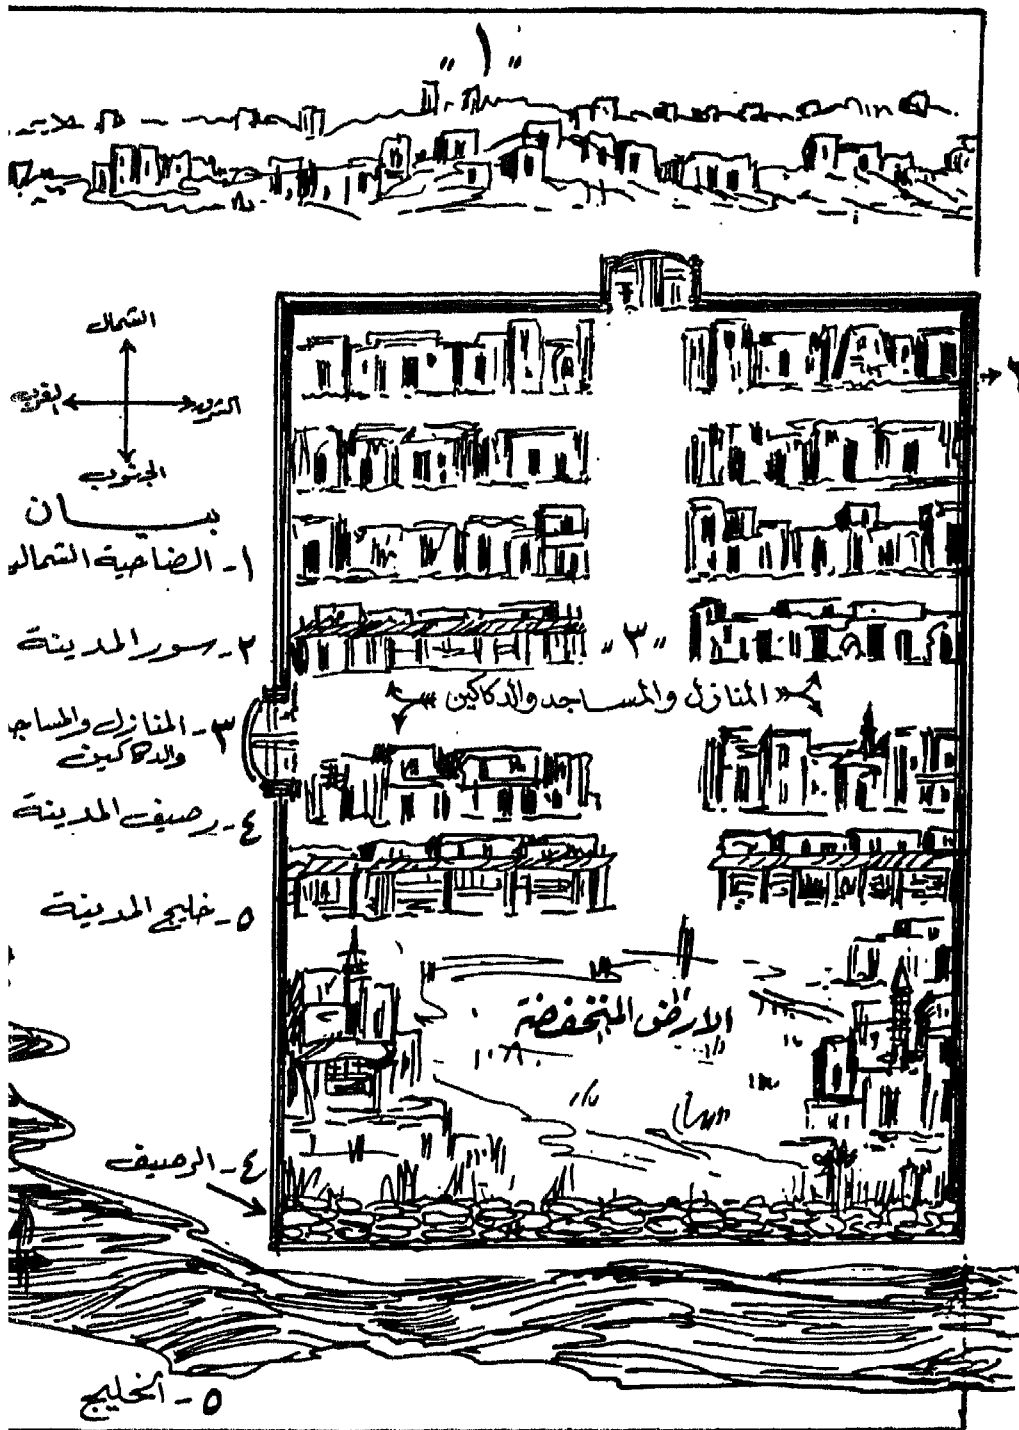 "١"
الشمال
الشرق
الغرب
الجنوب
بيـــان
١- الضاحية الشمالي
٢- سور المدينة
٣- المنازل والمساجد
والدكاكين
٤- رصيف المدينة
٥- خليج المدينة
"٣"
المنازل والمساجد والدكاكين
الارض المنخفضة
٤- الرصيف
٥- الخليج